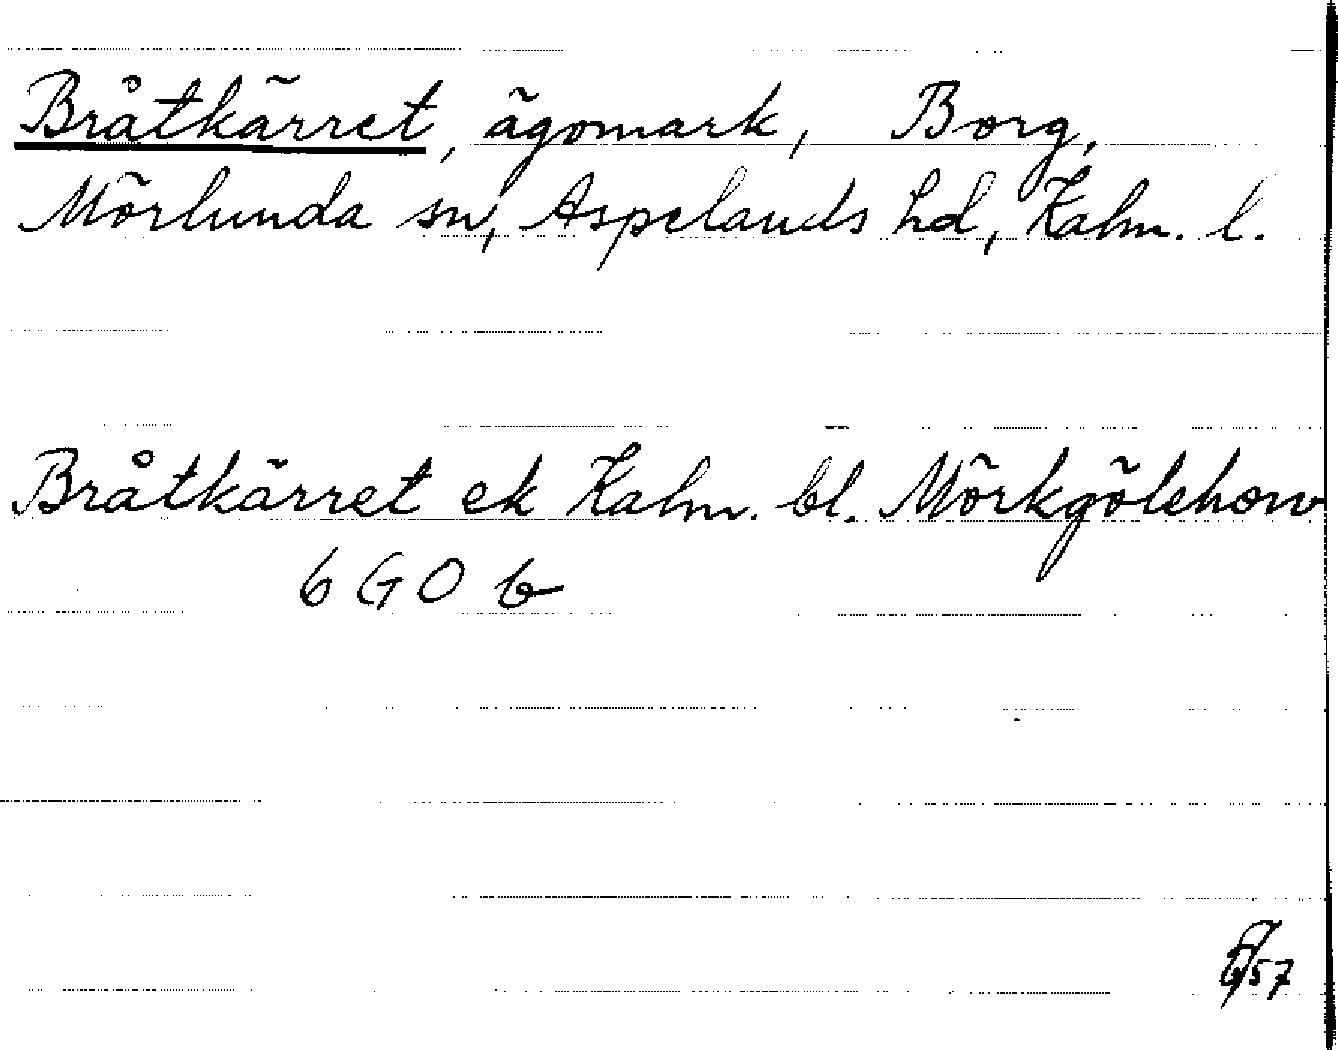 Bråtkärret, ägomark, Borg,
Mörlunda sn, Aspelands hd, Kalm. l.
Bråtkärret ek Kalm. bl. Mörkgölehorv
6 G O b
57